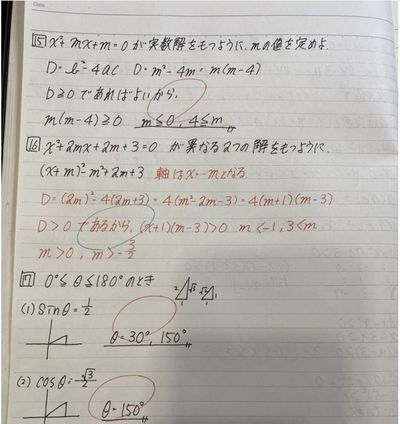 Date
15 x²+mx+m=0 が実数解をもつように、mの値を定めよ。
D=b²-4ac D=m²-4m=m(m-4)
D≧0 であればよいから、
m(m-4)≧0 m≦0, 4≦m
16 x²+2mx+2m+3=0 が異なる2つの解をもつように、
(x+m)²-m²+2m+3 軸はx=-mとなる
D=(2m)²-4(2m+3)=4(m²-2m-3)=4(m+1)(m-3)
D>0 であるから、(x+1)(m-3)>0 m<-1, 3<m
m>0, m>-3/2
17 0°≦θ≦180°のとき
(1) sinθ=1/2
2 √3 1 √2 1 1
θ=30°, 150°
(2) cosθ=-√3/2
θ=150°